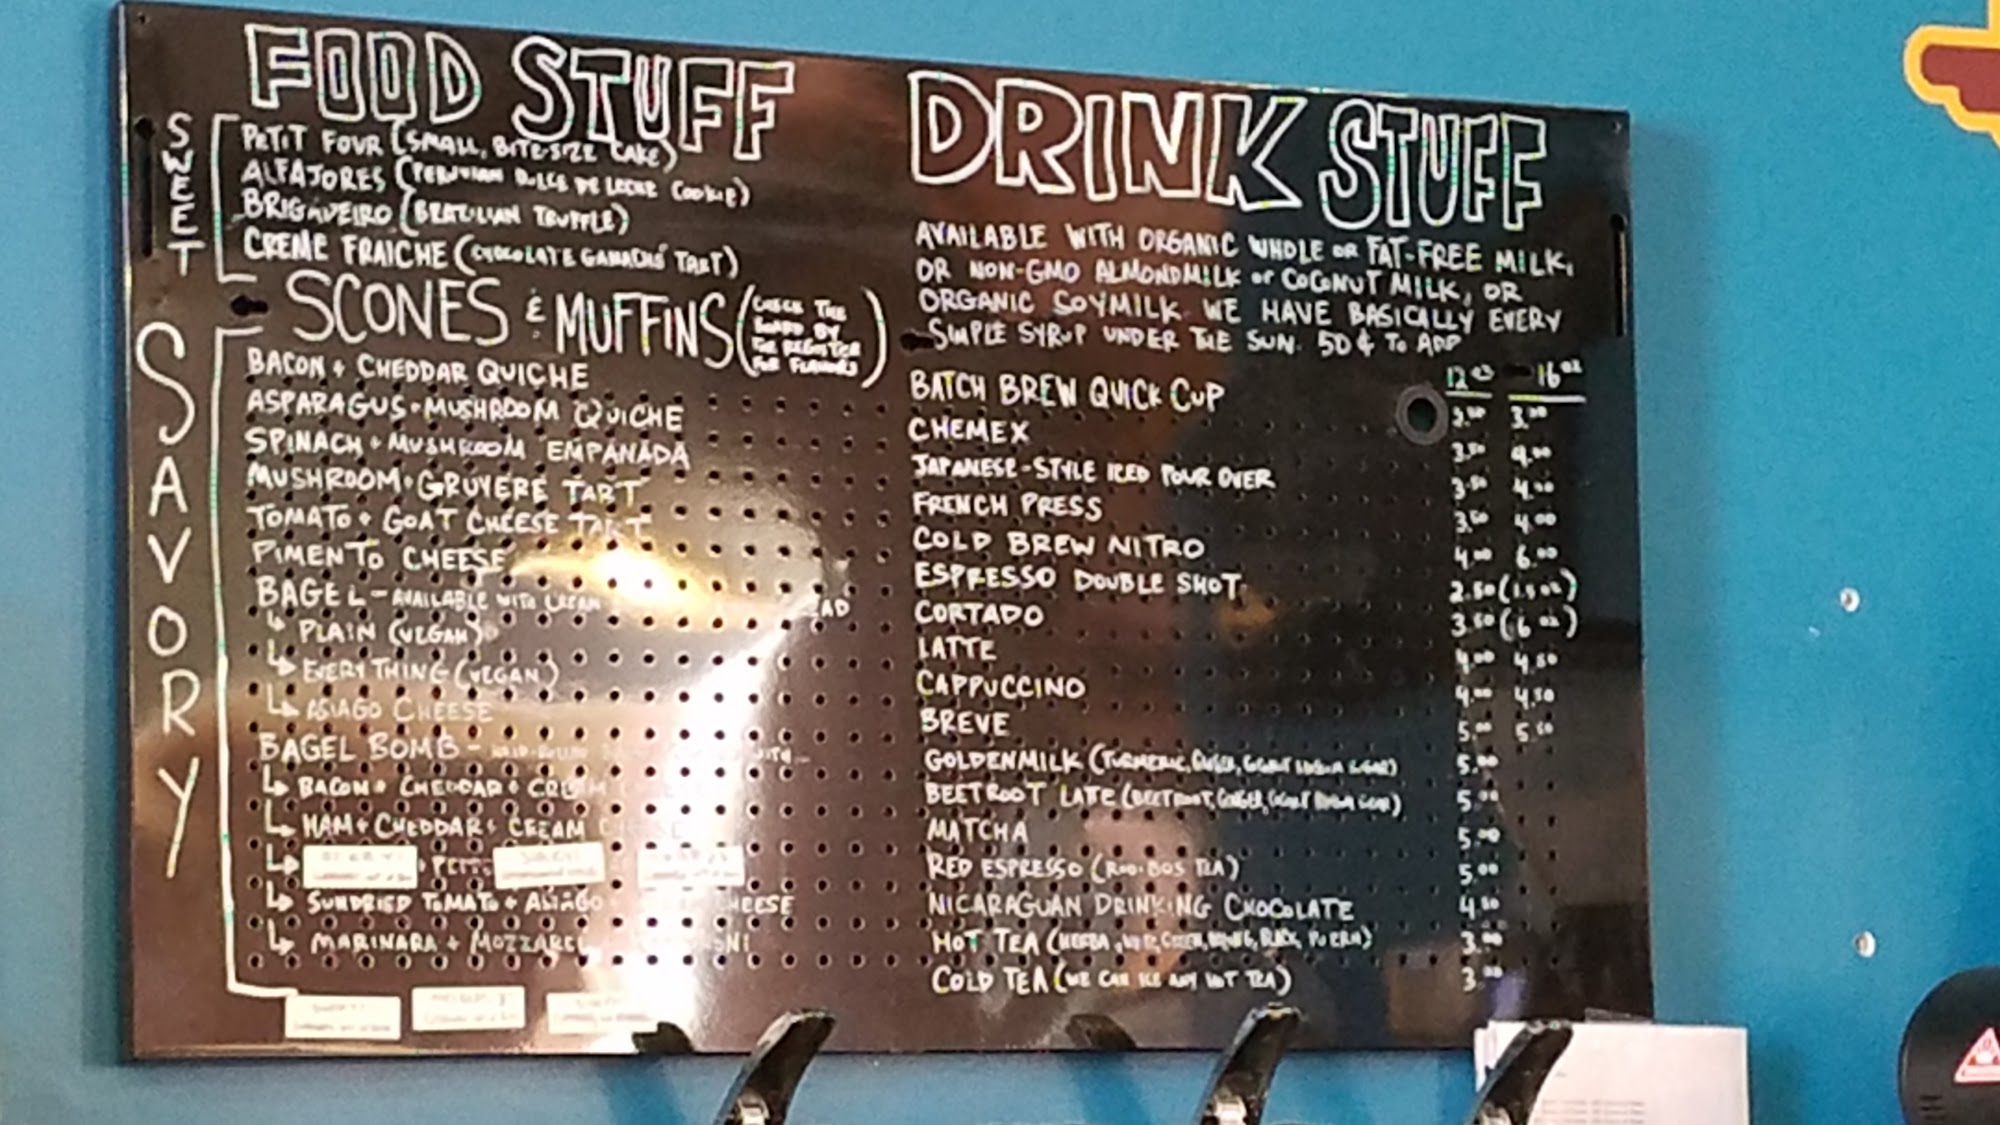 FOOD STUFF
SWEET
PETIT FOUR (SMALL, BITE-SIZE CAKE)
ALFAJORES (PERUVIAN DULCE DE LECHE COOKIE)
BRIGADEIRO (BRAZILIAN TRUFFLE)
CREME FRAICHE (CHOCOLATE GANACHE TART)
SCONES & MUFFINS (CHECK THE
BOARD BY
THE REGISTER
FOR FLAVORS)
SAVORY
BACON + CHEDDAR QUICHE
ASPARAGUS + MUSHROOM QUICHE
SPINACH + MUSHROOM EMPANADA
MUSHROOM + GRUYERE TART
TOMATO + GOAT CHEESE TART
PIMENTO CHEESE
BAGEL - AVAILABLE WITH CREAM
PLAIN (VEGAN)
EVERYTHING (VEGAN)
ASIAGO CHEESE
BAGEL BOMB -
BACON + CHEDDAR + CREAM
HAM + CHEDDAR + CREAM
SUNDRIED TOMATO + ASIAGO CHEESE
MARINARA +
DRINK STUFF
AVAILABLE WITH ORGANIC WHOLE OR FAT-FREE MILK,
OR NON-GMO ALMONDMILK OR COCONUT MILK, OR
ORGANIC SOYMILK. WE HAVE BASICALLY EVERY
SIMPLE SYRUP UNDER THE SUN. 50¢ TO ADD
12 oz 16 oz
BATCH BREW QUICK CUP 3.00
CHEMEX 3.50 4.00
JAPANESE-STYLE ICED POUR OVER 3.50 4.00
FRENCH PRESS 3.50 4.00
COLD BREW NITRO 4.00 6.00
ESPRESSO DOUBLE SHOT 2.50 (1.5 oz)
CORTADO 3.50 (6 oz)
LATTE 4.00 4.50
CAPPUCCINO 4.00 4.50
BREVE 5.00 5.50
GOLDENMILK (TURMERIC, GINGER, 5.00
BEETROOT LATE (BEETROOT, GINGER, 5.00
MATCHA 5.00
RED ESPRESSO (ROO-BOS TEA) 5.00
NICARAGUAN DRINKING CHOCOLATE 4.50
HOT TEA ( 3.00
COLD TEA (WE CAN ICE ANY HOT TEA) 3.00